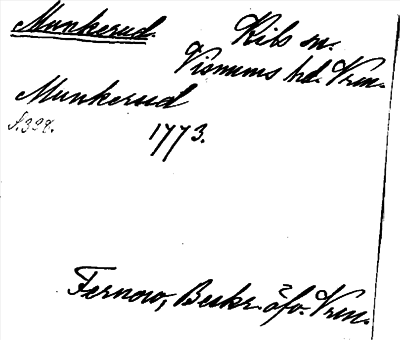 Munkerud. Kils sn.
Visnums hd. Vrm.
Munkerud
s. 398. 1773.
Fernow, Beskr. öfv. Vrm.